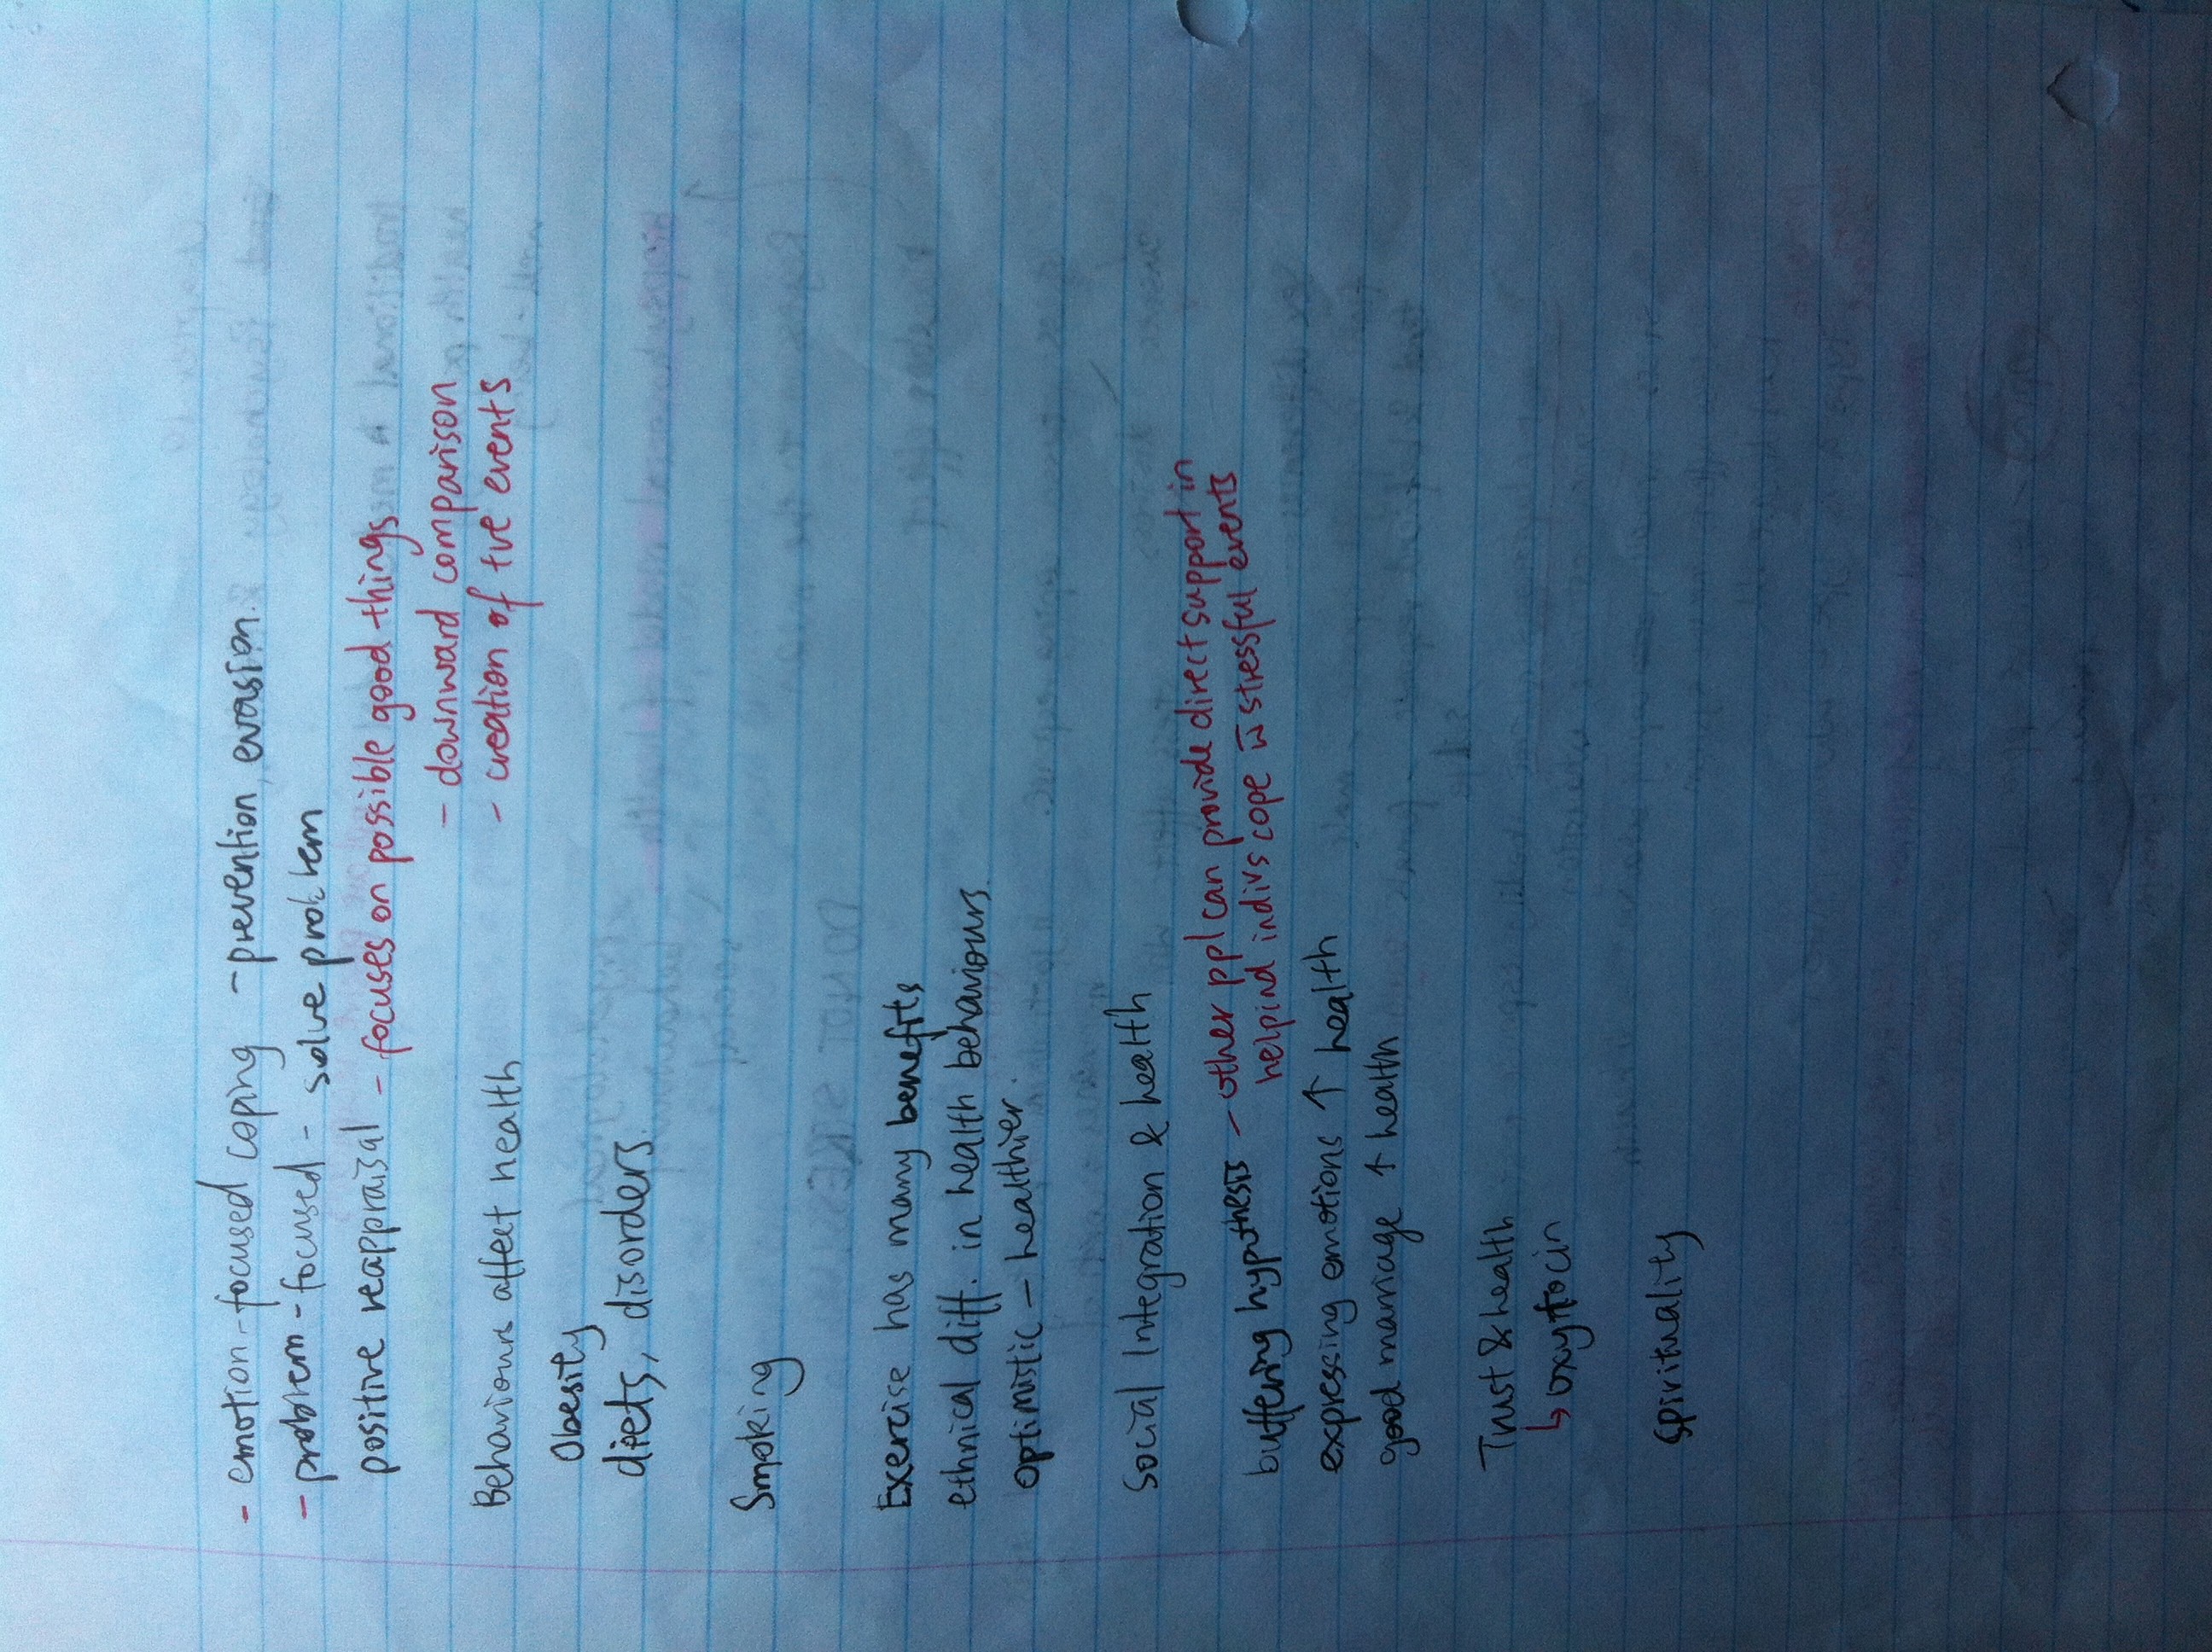 - emotion-focused coping - prevention, evasion.
- problem-focused - solve problem
positive reappraisal - focuses on possible good things
- downward comparison
- creation of +ve events
Behaviours affect health
Obesity
diets, disorders.
Smoking
Exercise has many benefits
ethnical diff. in health behaviours.
optimistic - healthier.
Social Integration & health
buffering hypothesis - other ppl can provide direct support in
helpind indivs cope w̄ stressful events
expressing emotions ↑ health
good marriage ↑ health
Trust & health
↳ oxytocin
Spirituality